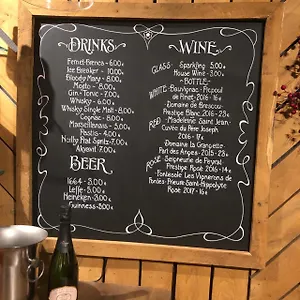 DRINKS
Fernet-Branca - 6.00€
Ice Breaker - 10.00€
Bloody Mary - 8.00€
Mojito - 8.00€
Gin-Tonic - 7.00€
Whisky - 6.00€
Whisky Single Malt - 8.00€
Cognac - 8.00€
Marseillanais - 5.00€
Pastis - 4.00€
Noilly Prat Spritz - 7.00€
Akvavit - 7.00€
BEER
1664 - 3.00€
Leffe - 3.00€
Heineken - 3.00€
Guinness - 3.00€
WINE
GLASS - Sparkling 5.00€
House Wine - 3.00€
- BOTTLE -
WHITE - Sauvignac - Picpoul
de Pinet 2016 - 16€
- Domaine de Brescou
Prestige Blanc 2016 - 23€
RED - Madeleine Saint Jean
Cuvée du Père Joseph
2016 - 17€
- Domaine la Grangette
Part des Anges - 2015 - 23€
ROSÉ - Seigneurie de Peyrat
Prestige Rosé 2016 - 14€
- Pontesole Les Vignerons de
Fontès - Prieuré Saint-Hippolyte
Rosé 2017 - 16€